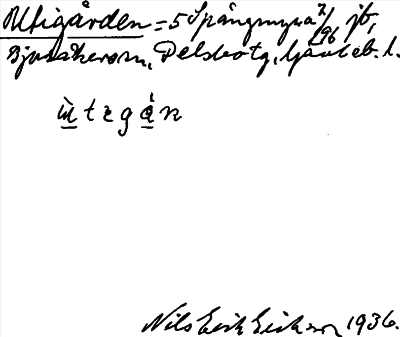 Utigården = 5 Spångmyra 2/96 jb,
Bjuråkers sn, Delsbo tg, Gävleb. l.
ùtzgá̱n
Nils Erik Eriksson 1936.